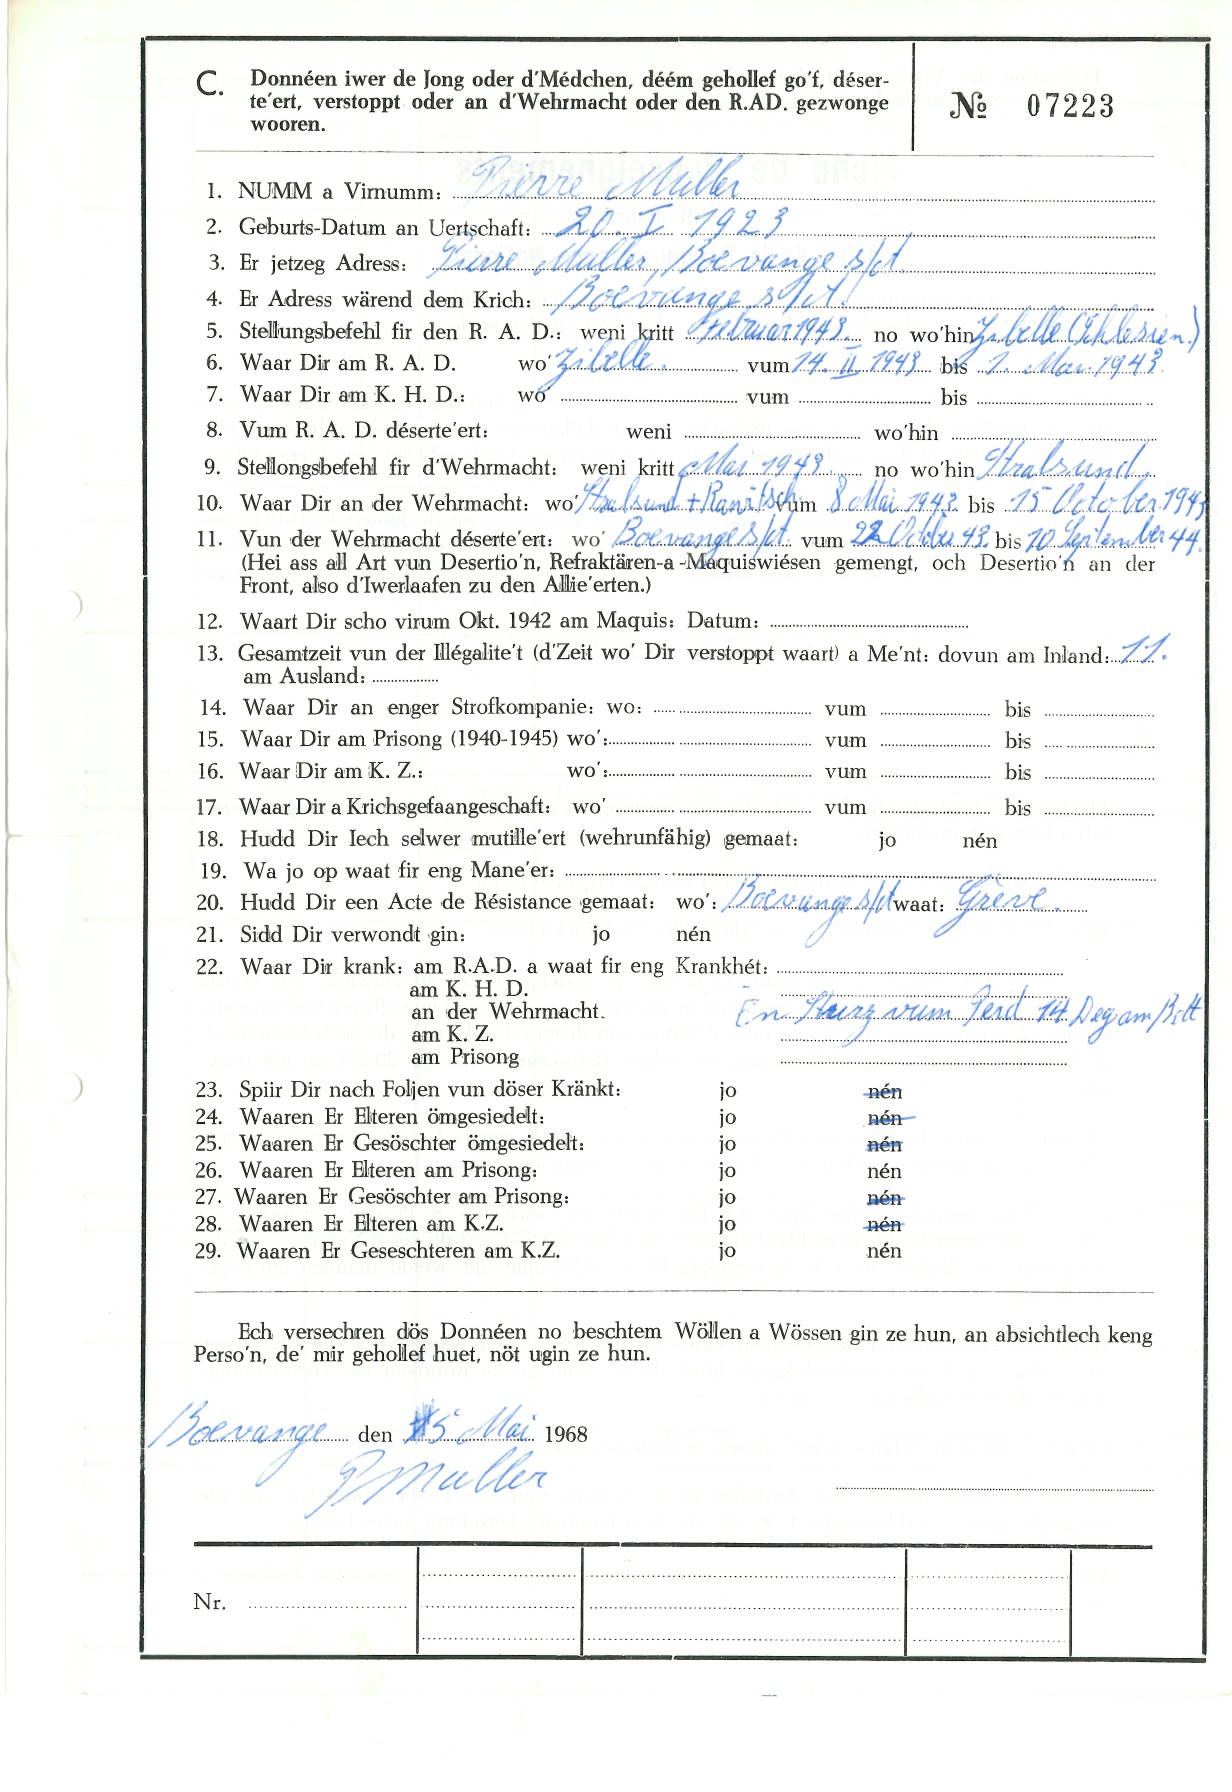 C. Donnéen iwer de Jong oder d'Médchen, déém gehollef go'f, déser-
te'ert, verstoppt oder an d'Wehrmacht oder den R.AD. gezwonge
wooren.
№ 07223
1. NUMM a Virnumm: Pierre Muller
2. Geburts-Datum an Uertschaft: 20. I 1923
3. Er jetzeg Adress: Pierre Muller, Boevange s/ct.
4. Er Adress wärend dem Krich: Boevange s/ct.
5. Stellungsbefehl fir den R. A. D.: weni kritt Februar 1943. no wo'hin Zibelle (Schlesien.)
6. Waar Dir am R. A. D. wo' Zibelle. vum 14. II 1943 bis 1. Mai 1943.
7. Waar Dir am K. H. D.: wo' vum bis
8. Vum R. A. D. déserte'ert: weni wo'hin
9. Stellongsbefehl fir d'Wehrmacht: weni kritt Mai 1943. no wo'hin Stralsund.
10. Waar Dir an der Wehrmacht: wo' Stralsund + vum 8 Mai 1943. bis 15 October 1943
11. Vun der Wehrmacht déserte'ert: wo' Boevange s/ct. vum 22 October 43. bis 10 September 44.
(Hei ass all Art vun Desertio'n, Refraktären-a-Maquiswiésen gemengt, och Desertio'n an der
Front, also d'Iwerlaafen zu den Allie'erten.)
12. Waart Dir scho virum Okt. 1942 am Maquis: Datum:
13. Gesamtzeit vun der Illégalite't (d'Zeit wo' Dir verstoppt waart) a Me'nt: dovun am Inland: 11.
am Ausland:
14. Waar Dir an enger Strofkompanie: wo: vum bis
15. Waar Dir am Prisong (1940-1945) wo': vum bis
16. Waar Dir am K. Z.: wo': vum bis
17. Waar Dir a Krichsgefaangeschaft: wo' vum bis
18. Hudd Dir Iech selwer mutille'ert (wehrunfähig) gemaat: jo nén
19. Wa jo op waat fir eng Mane'er:
20. Hudd Dir een Acte de Résistance gemaat: wo': Boevange s/ct waat: Grève.
21. Sidd Dir verwondt gin: jo nén
22. Waar Dir krank: am R.A.D. a waat fir eng Krankhét:
am K. H. D.
an der Wehrmacht. En Sturz vum Perd 14 Deg am Bett
am K. Z.
am Prisong
23. Spiir Dir nach Foljen vun döser Kränkt: jo nén
24. Waaren Er Elteren ömgesiedelt: jo nén
25. Waaren Er Gesöschter ömgesiedelt: jo nén
26. Waaren Er Elteren am Prisong: jo nén
27. Waaren Er Gesöschter am Prisong: jo nén
28. Waaren Er Elteren am K.Z. jo nén
29. Waaren Er Geseschteren am K.Z. jo nén
Ech versechren dös Donnéen no beschtem Wöllen a Wössen gin ze hun, an absichtlech keng
Perso'n, de' mir gehollef huet, nöt ugin ze hun.
Boevange den 5 Mai 1968
P Muller
Nr.